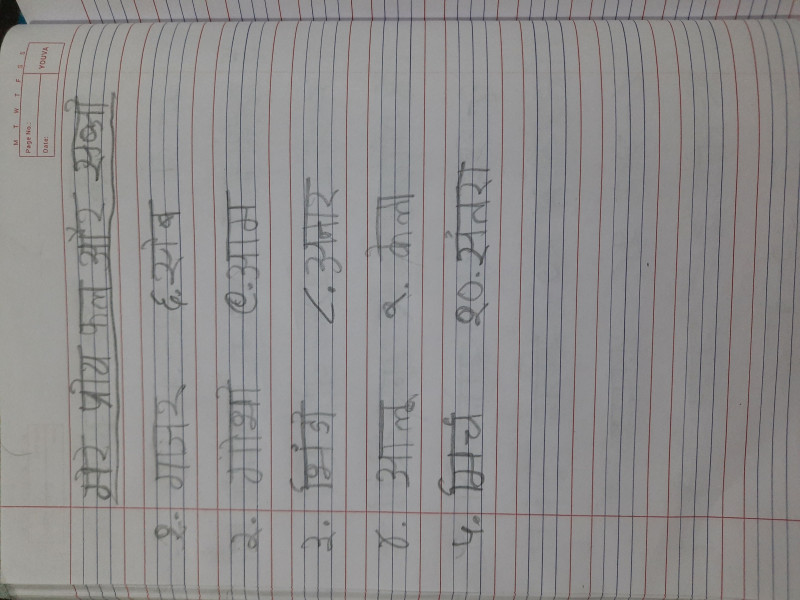 M T W T F S S
Page No.:
YOUVA
Date:
मेरे प्रीय फल और सब्जी
१. गाजर ६. सेब
२. गोभी ७. आम
३. भिंडी ८. अनार
४. आलू ९. केला
५. मिर्च १०. संतरा